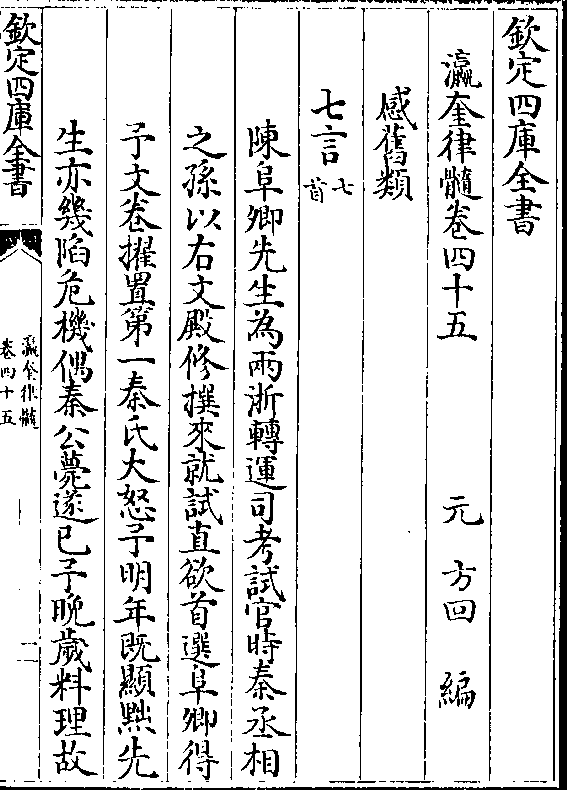 欽定四庫全書
瀛奎律髓卷四十五
元 方回 編
感舊類
七言七首
陳阜卿先生為兩浙轉運司考試官時秦丞相
之孫以右文殿修撰來就試直欲首選阜卿得
予文卷擢置第一秦氏大怒予明年既顯黜先
生亦幾陷危機偶秦公薨遂已予晚歲料理故
欽定四庫全書
瀛奎律髓
卷四十五
一